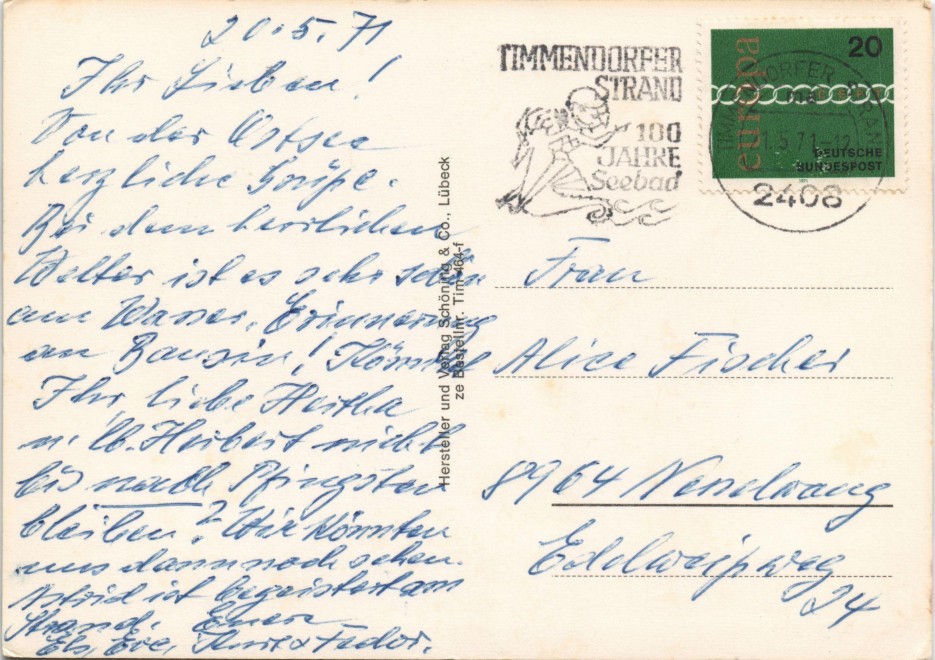 20.5.71
Ihr Lieben!
Von der Ostsee
herzliche Grüße.
Bei dem herrlichen
Wetter ist es sehr schön
am Wasser. Erinnerung
an Bansin! Könntet
Ihr, liebe Hertha
u. lb. Herbert nicht
bis nach Pfingsten
bleiben? Wir könnten
uns dann noch sehen.
Astrid ist begeistert am
Strand. Euer
Els, Eve, + Fedor.
Hersteller und Verlag Schöning & Co., Lübeck
ze Bestellnr. Tim 464-f
TIMMENDORFER
STRAND
100
JAHRE
Seebad
europa
20
DEUTSCHE
BUNDESPOST
1971
TIMMENDORFER STRAND
ma
1.5.71-12
2408
Frau
Alice Fischer
8964 Nesselwang
Edelweißweg
24